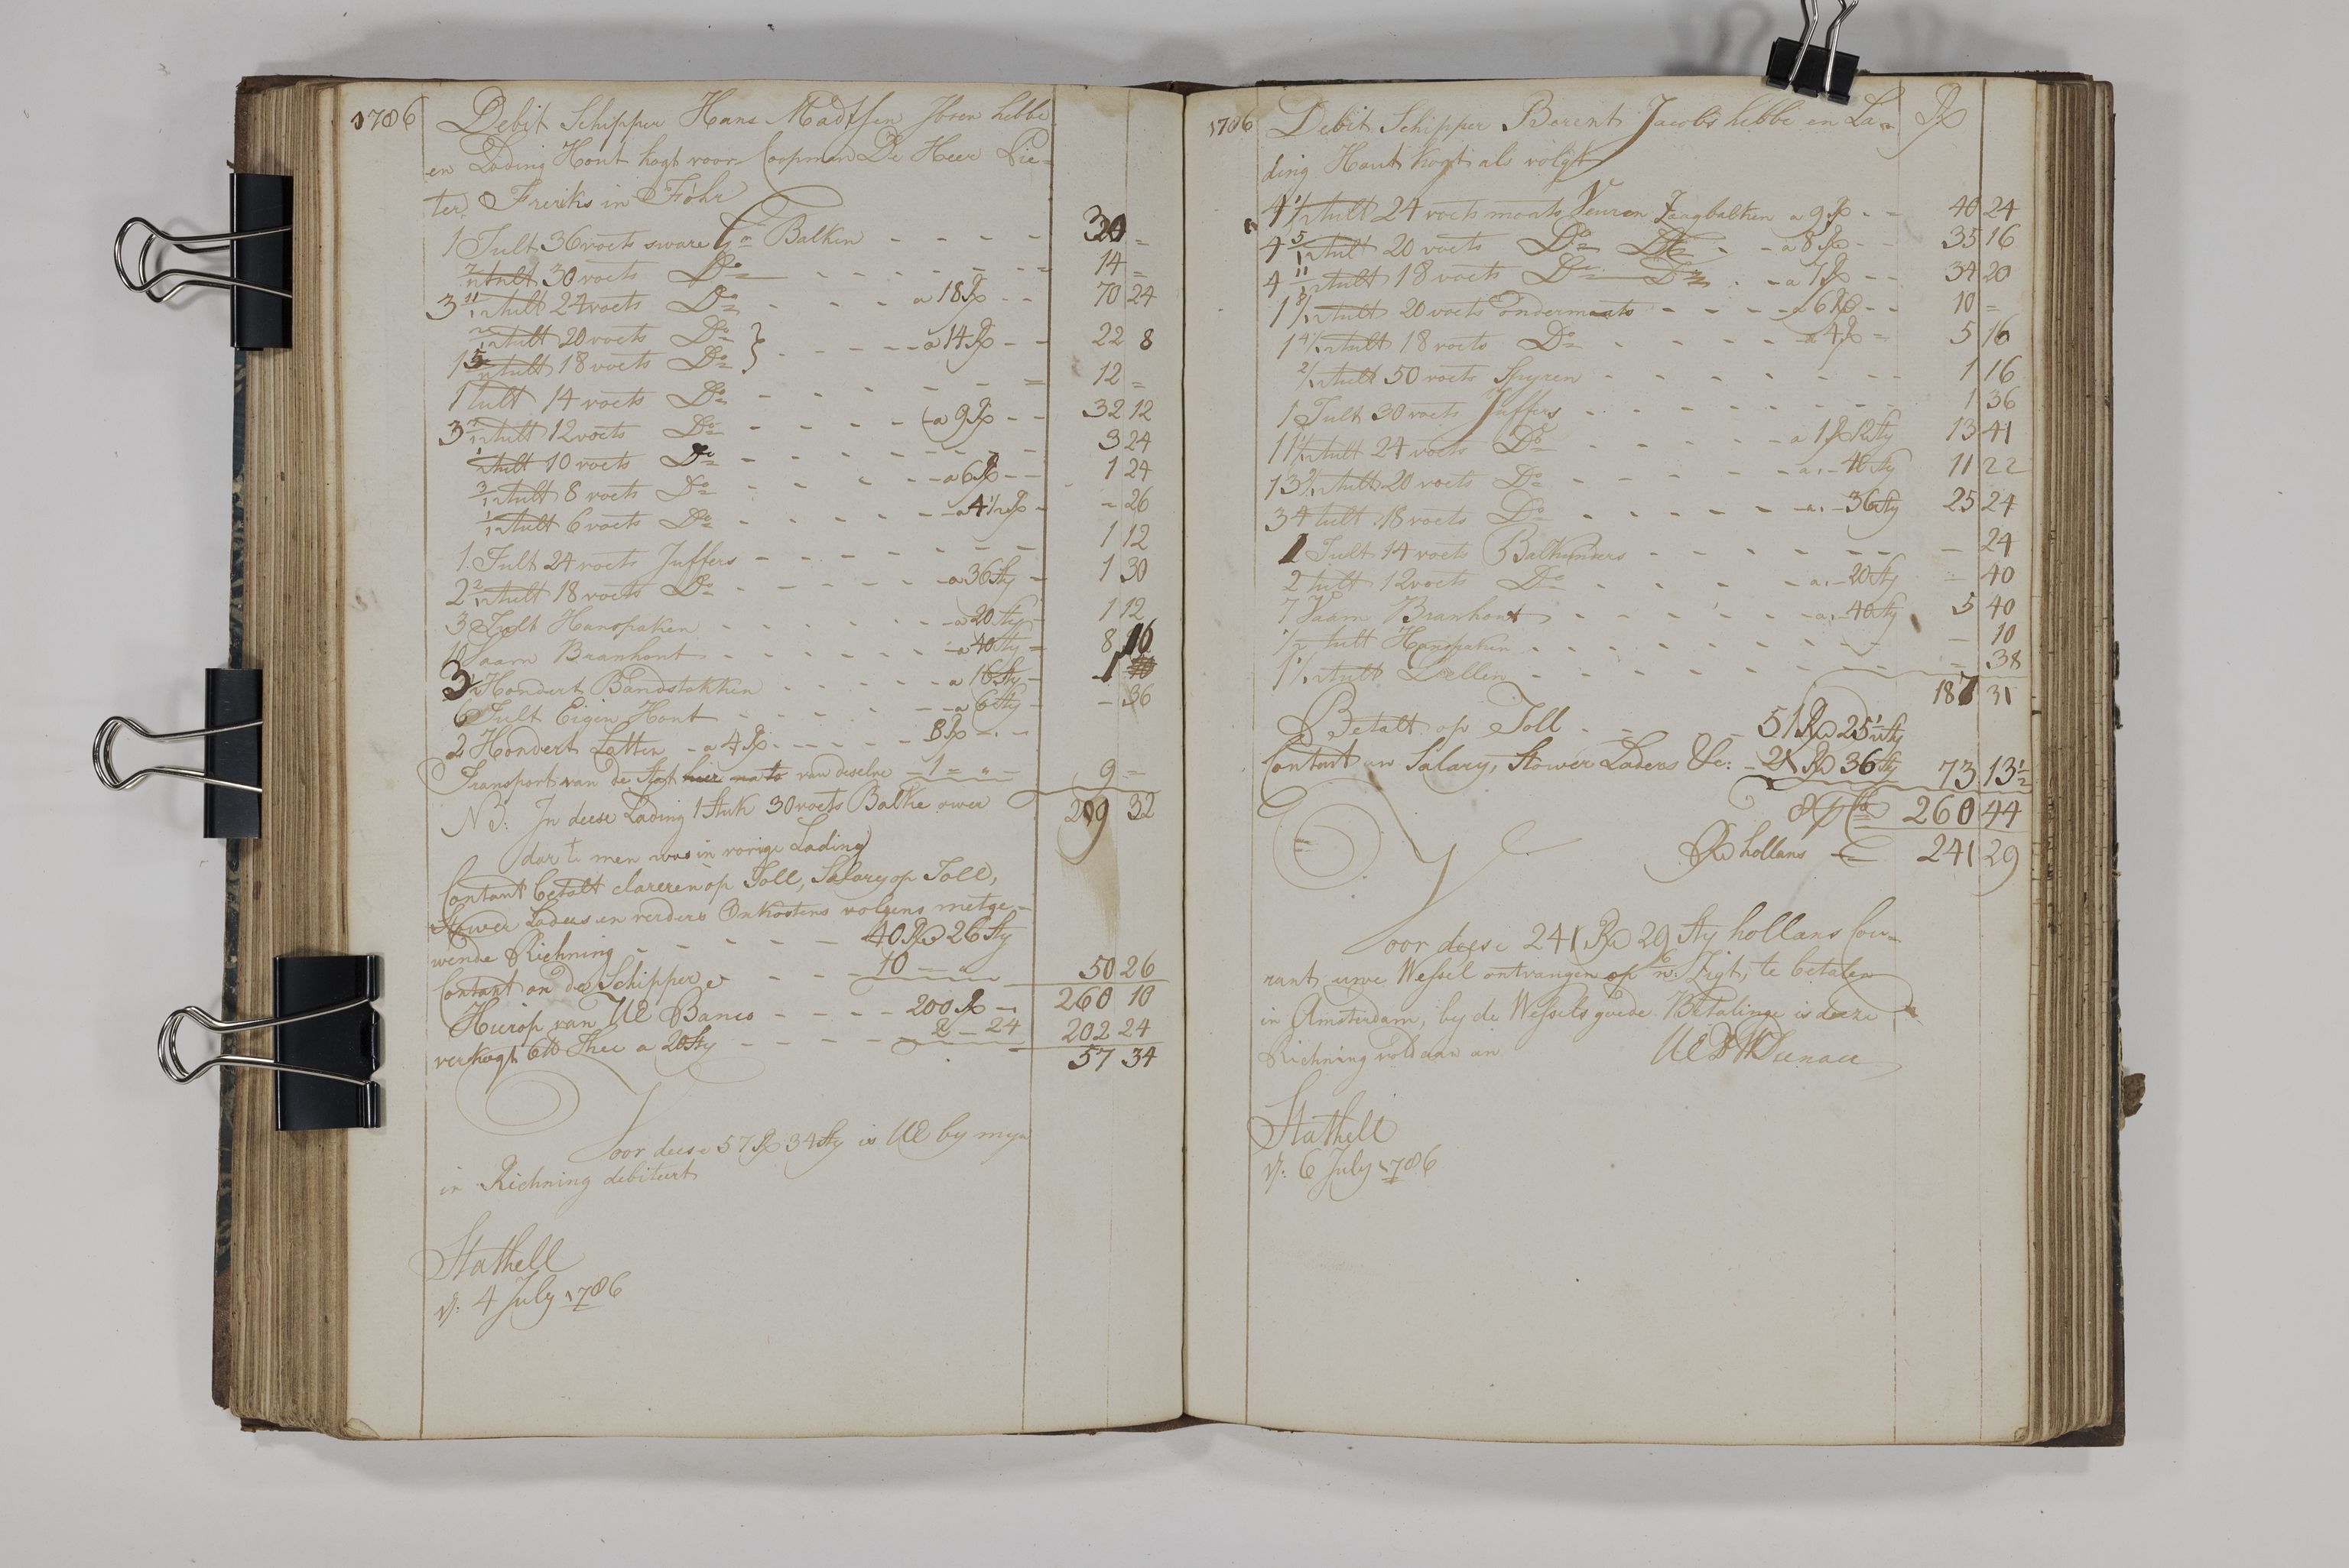 1786 Debit Schipper Hans Madtsen Jbsen hebbe
en Lading Hout kogt voor Coopman De Heer Pie-
ter Freriks in Föhr
1 Tult 36 voets sware Balken - - - - 30 =
7/12 tult 30 voets Do - - - - - - 14 =
3 11/12 tult 24 voets Do - - - - a 18 R - - 70 24
2/12 tult 20 voets Do
1 5/12 tult 18 voets Do } - - - - - a 14 R - - 22 8
1 tult 14 voets Do - - - - - = 12 =
3 7/12 tult 12 voets Do - - - - - a 9 R - - 32 12
tult 10 voets Do - - - - - - 3 24
3/12 tult 8 voets Do - - - - a 6 R - - 1 24
1/12 tult 6 voets Do - - - - - a 4 1/2 R - - 26
1 Tult 24 voets Juffers - - - - - - - 1 12
2 2/12 tult 18 voets Do - - - - - a 36 Sty - 1 30
3 Tult Hanspaken - - - - - - a 20 Sty - 1 12
10 Faam Branhout - - - - - - a 40 Sty = 8 16
3 1/2 Hondert Bandstokken - - - - - a 16 Sty - 1
6 Tult Eigen Hout - - - - - a 6 Sty - - 36
2 Hondert Latten - a 4 R - - - - - 8 R - - -
Transport van de Stat van deselve - 1 = " - 9 =
NB: In deese Lading 1 Stuk 30 voets Balke over 209 32
dar te men was in vorige Lading
Contant betalt clareren op Toll, Salary op Toll,
Stower Laders en verdere Onkostens volgens metge-
vende Richning - - - - - 40 R 26 Sty
Contant an de Schipper - - - - 10 = " - 50 26
260 10
Hierop van UE Banco - - - - 200 R -
verkogt 6 lb Thee a 20 Sty - - - - - 2 - 24 202 24
57 34
Voor deese 57 R 34 Sty is UE by myn
in Richning debiteert
Stathell
d: 4 July 1786
1786 Debit Schipper Berent Jacobs hebbe en La- R
ding Hout kogt als volgt
4 1/2 tult 24 voets maats Veuren Zaagbalken a 9 R - - 40 24
4 5/12 tult 20 voets Do Do - - a 8 R - - 35 16
4 11/12 tult 18 voets Do Do - - a 7 R - - 34 20
1 8/12 tult 20 voets ondermaats - - - - a 6 R - - 10 =
1 4/12 tult 18 voets Do - - - - - a 4 R = 5 16
2/12 tult 50 voets Spyren - - - - - - - 1 16
1 Tult 30 voets Juffers - - - - - - - 1 36
11 1/12 tult 24 voets Do - - - - - a 1 R 12 Sty 13 41
13 tult 20 voets Do - - - - - a. - 40 Sty 11 22
34 tult 18 voets Do - - - - - a. - 36 Sty 25 24
1 Tult 14 voets Balkunders - - - - - - - 24
2 tult 12 voets Do - - - - - a. - 20 Sty - 40
7 Vaam Branhout - - - - - a. - 40 Sty 5 40
1/2 tult Hanspaken - - - - - - - - 10
1 1/12 tult Dellen - - - - - - - - 38
187 31
Betalt op Toll - - - 51 R 25 1/2 Sty
Contant an Salary, Stower Laders &c: - 21 R 36 Sty 73 13 1/2
260 44
R hollans 241 29
Voor deese 241 R 29 Sty hollans Cou-
rant uwe Wessel ontvangen op Zigt, te betalen
in Amsterdam, by de Wessels goede Betalinge is deeze
Richning voldaan an UEDWDunau
Stathell
d: 6 July 1786